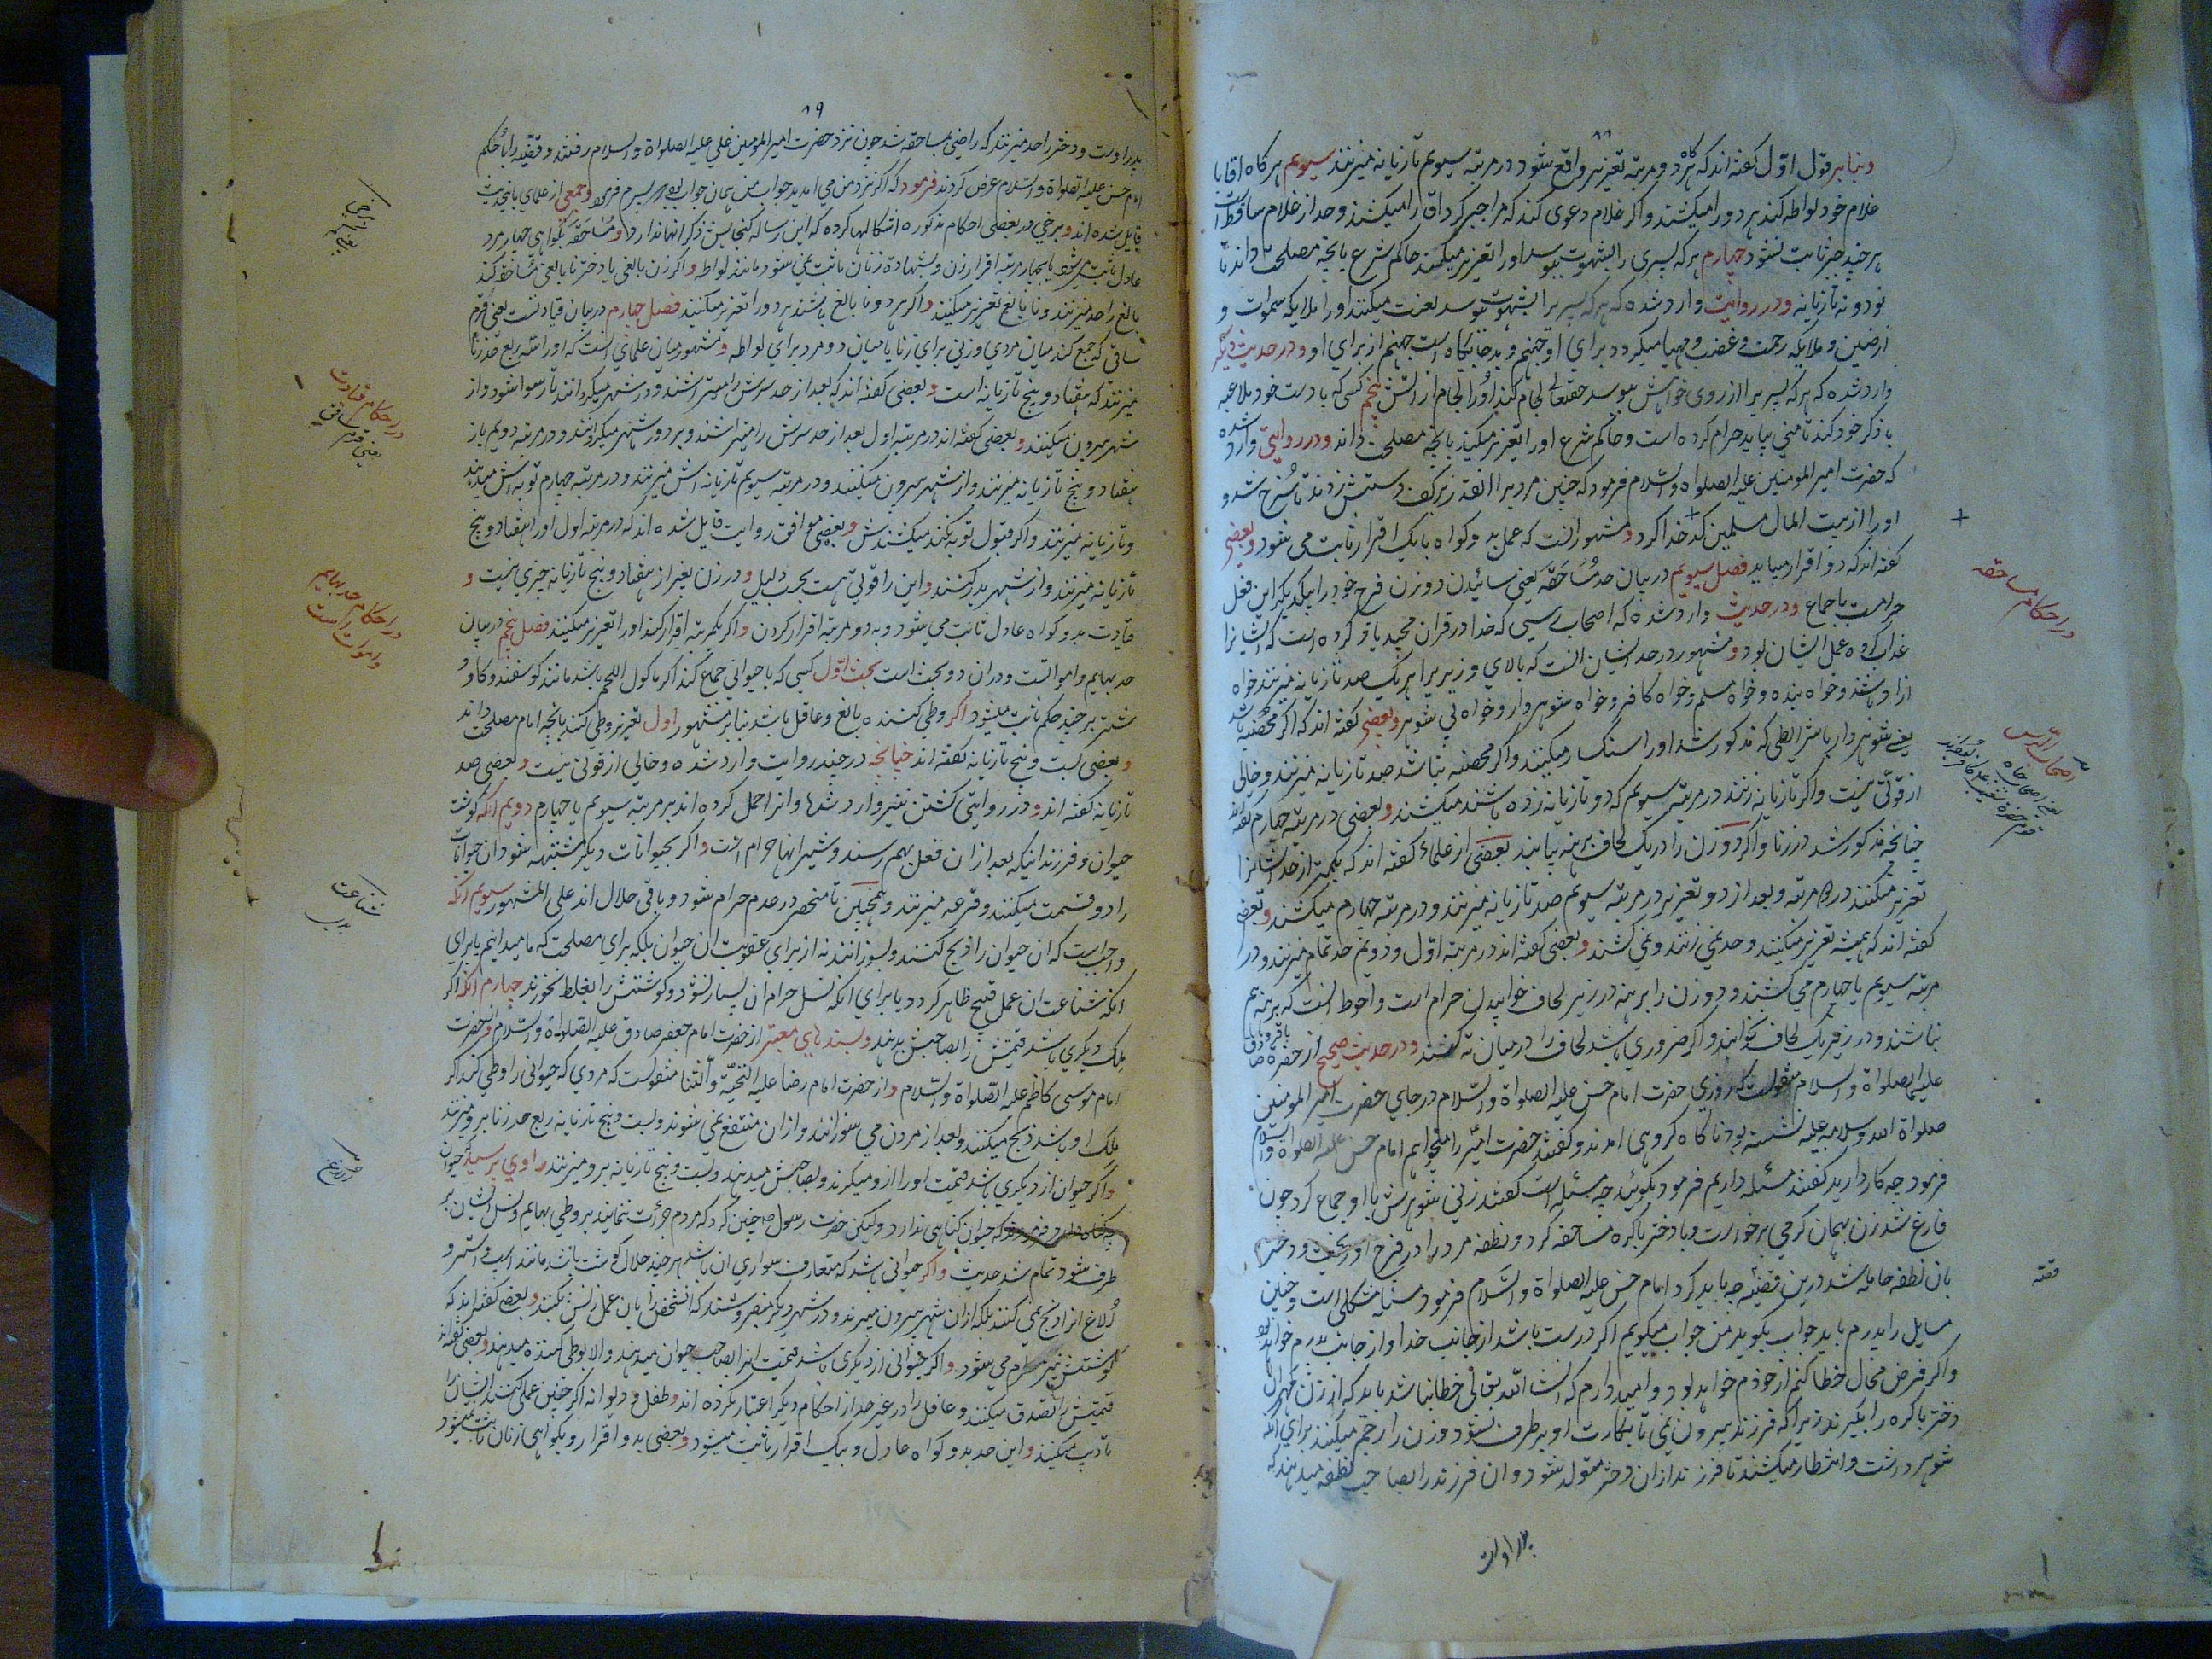 ٨٨
و بنا بر قول اول گفته اند که هرگاه دو مرتبه تعزیر واقع شود در مرتبه سیوم تازیانه میزنند سیویم هرگاه اقا با
غلام خود لواطه کند هر دو را میکشند و اگر غلام دعوی کند که مرا جبر کرد اقا را میکشند و حد از غلام ساقط است
هر چند جبر ثابت نشود چهارم هر که پسری را بشهوت ببوسد او را تعزیر میکند حاکم شرع بانچه مصلحت داند تا
نود و نه تازیانه و در روایت وارد شده که هر که پسریرا بشهوت ببوسد لعنت میکنند او را ملایکه سموات و
ارضین و ملایکه رحمت و غضب و مهیا میگردد برای او جهنم و بد جایگاه است جهنم از برای او و در حدیث دیگر
وارد شده که هر که پسریرا از روی خواهش ببوسد حقتعالی لجام کند او را لجام از اتش پنجم کسی که با دست خود ملاعبه
با ذکر خود کند تا منی بیاید حرام کرده است و حاکم شرع او را تعزیر میکند بانچه مصلحت داند و در روایتی وارد شده
که حضرت امیر المومنین علیه الصلواة و السلام فرمود که چنین مردیرا انقدر بر کف دستش زدند تا سرخ شد و
او را از بیت المال مسلمین کدخدا کرد و مشهور انست که عمل بد و گواه با یک اقرار ثابت می شود و بعضی
گفته اند که دو اقرار میباید فصل سیویم در بیان حد مساحقه یعنی سائیدن دو زن فرج خود را بیکدیگر این فعل
حرامست باجماع و در حدیث وارد شده که اصحاب رسی که خدا در قران مجید یاد کرده است که ایشانرا
عذاب کرده عمل ایشان بود و مشهور در حد ایشان انست که بالای و زیریرا هر یک صد تازیانه میزنند خواه
ازاد باشند و خواه بنده و خواه مسلم و خواه کافر و خواه شوهردار و خواه بی شوهر و بعضی گفته اند که اگر محصنه باشد
یعنی شوهردار باشرایطی که مذکور شد او را سنگسار میکنند و اگر محصنه نباشد صد تازیانه میزنند و خالی
از قوتی نیست و اگر تازیانه زنند در مرتبه سیویم که دو تازیانه زده باشند میکشند و بعضی در مرتبه چهارم گفته اند
چنانچه مذکور شد در زنا و اگر دو زن را در یک لحاف برهنه بیابند بعضی از علماء گفته اند که یکمتر از حد ایشانرا
تعزیر میکنند در دو مرتبه و بعد از دو تعزیر در مرتبه سیویم صد تازیانه میزنند و در مرتبه چهارم میکشند و بعضی
گفته اند که همیشه تعزیر میکنند و حد نمی زنند و نمی کشند و بعضی گفته اند در مرتبه اول و دویم حد تمام میزنند و در
مرتبه سیویم یا چهارم می کشند و دو زن را برهنه در زیر لحاف خوابیدن حرام است و احوط انست که برهنه هم
نباشند و در زیر یک لحاف نخوابند و اگر ضروری باشد لحاف را در میان ته کنند و در حدیث صحیح از حضرة باقر و صادق
علیهما الصلواة و السلام منقولست که روزی حضرت امام حسن علیه الصلواة و السلام در جای حضرت امیر المومنین
صلواة الله و سلامه علیه نشسته بود ناگاه گروهی امدند و گفتند حضرت امیر را میخواهیم امام حسن علیه الصلواة و السلام
فرمود چه کار دارید گفتند مسئله داریم فرمود بگوئید چه مسئله است گفتند زنی شوهرش با او جماع کرد چون
فارغ شد زن بهمان گرمی برخواست و با دختر باکره مساحقه کرد و نطفه مرد را در فرج او ریخت و دختر
بان نطفه حامله شد درین قضیه چه باید کرد امام حسن علیه الصلواة و السلام فرمود مسئله مشکلی است و چنین
مسایل را پدرم باید جواب بگوید من جواب میگویم اگر درست باشد از جانب خدا و از جانب پدرم خواهد بود
و اگر فرض محال خطا کنم از خودم خواهد بود و امیدوارم که انشاء الله تعالی خطا نباشد باید که از زن مهر ان
دختر باکره را بگیرند زیرا که فرزند بیرون نمی تا بکارت او برطرف نشود و زن را رجم میکنند برای انکه
شوهر داشت و انتظار میکشند تا فرزند از ان دختر متولد شود و ان فرزند را بصاحب نطفه میدهند که
در احکام مساحقه
اصحاب الرس
قضیه
٨٩
پدر اوست و دختر را حد میزنند که راضی بمساحقه شد چون نزد حضرت امیر المومنین علی علیه الصلواة و السلام رفتند و قضیه را با حکم
امام حسن علیه الصلواة و السلام عرض کردند فرمود که اگر نزد من می امدید جواب من همان جواب بود که پسرم فرمود و جمعی از علمای باینحدیث
قایل شده اند و برخی در بعضی احکام مذکوره اشکالها کرده که این رساله گنجایش ذکر انها ندارد و مساحقه بگواهی چهار مرد
عادل ثابت میشود یا بچهار مرتبه اقرار زن و بشهادة زنان ثابت نمی شود مانند لواطه و اگر زن بالغی با دختر نابالغی مساحقه کند
بالغ را حد میزنند و نابالغ تعزیر میکنند و اگر هر دو نابالغ باشند هر دو را تعزیر میکنند فصل چهارم در بیان قیادتست یعنی قرم
ساقی که جمع کند میان مردی و زنی برای زنا یا میان دو مرد برای لواطه و مشهور میان علمای انست که او را سه ربع حد زنا
میزنند که هفتاد و پنج تازیانه است و بعضی گفته اند که بعد از حد سرش را میتراشند و در شهر میگردانند تا رسوا شود و از
شهر بیرون میکنند و بعضی گفته اند در مرتبه اول بعد از حد سرش را میتراشند و بر دور شهر میگردانند و در مرتبه دویم باز
هفتاد و پنج تازیانه میزنند و از شهر بیرون میکنند و در مرتبه سیویم تازیانه اش میزنند و در مرتبه چهارم توبه اش میدهند
و تازیانه میزنند و اگر قبول توبه نکند میکشندش و بعضی موافق روایت قایل شده اند که در مرتبه اول او را هفتاد و پنج
تازیانه میزنند و از شهر بدر کنند و این را قوتی هست بحسب دلیل و در زن بغیر از هفتاد و پنج تازیانه چیزی نیست و
قیادت بدو گواه عادل ثابت می شود و به دو مرتبه اقرار کردن و اگر یکمرتبه اقرار کند او را تعزیر میکنند فصل پنجم در بیان
حد بهایم و امواتست و در ان دو بحث است بحث اول کسی که با حیوانی جماع کند اگر ماکول اللحم باشد مانند گوسفند و گاو و
شتر هر چند حکم ثابت میشود اگر وطی کننده بالغ و عاقل باشد بنا بر مشهور اول تعزیر وطی کننده بانچه امام مصلحت داند
و بعضی بیست و پنج تازیانه گفته اند چنانچه در چند روایت وارد شده و خالی از قوتی نیست و بعضی صد
تازیانه گفته اند و در روایتی کشتن نیز وارد شده و انرا حمل کرده اند بر مرتبه سیویم یا چهارم دویم انکه گوشت
حیوان و فرزندانیکه بعد از ان فعل بهم رسند و شیر انها حرام است و اگر بحیوانات دیگر مشتبه شود ان حیوانات
را دو قسمت میکنند و قرعه میزنند و همچنین تا منحصر در حرام شود و باقی حلال اند علی المشهور سیویم انکه
واجب است که ان حیوان را ذبح کنند و بسوزانند نه از برای عقوبت ان حیوان بلکه برای مصلحت که ما نمیدانیم یا برای
انکه شناعت ان عمل قبیح ظاهر گردد یا برای انکه نسل حرام ان بسیار نشود و گوشتش را بغلط نخورند چهارم انکه اگر
ملک دیگری باشد قیمتش را بصاحبش بدهند و بسندهای معتبر از حضرت امام جعفر صادق علیه الصلواة و السلام و حضرت
امام موسی کاظم علیه الصلواة و السلام و از حضرت امام رضا علیه التحیة و الثنا منقولست که مردی که حیوانی را وطی کند اگر
ملک او باشد ذبح میکنند و بعد از مردن می سوزانند و از ان منتفع نمی شوند و بیست و پنج تازیانه ربع حد زنا برو میزنند
و اگر حیوان از دیگری باشد قیمت او را ازو میگیرند و بصاحبش میدهند و بیست و پنج تازیانه برو میزنند راوی پرسید که حیوان
چه گناه دارد فرمود که حیوان گناهی ندارد ولیکن حضرت رسول چنین کرد که مردم جرأت ننمایند بر وطی بهایم و نسل انسان بر
طرف شود تمام شد حدیث و اگر حیوانی باشد که متعارف سواری ان باشد هر چند حلال گوشت باشد مانند اسب و استر و
الاغ انرا ذبح نمی کنند بلکه از ان شهر بیرون میبرند و در شهر دیگر میفروشند که انشخص را بان عمل سرزنش نکنند و بعضی گفته اند که
گوشتش نیز حرام می شود و اگر حیوانی از دیگری باشد قیمت انرا بصاحب حیوان میدهند و الا بوطی کننده میدهند و بعضی گفته اند
قیمتش را تصدق میکنند و عاقل را در غیر حد از احکام دیگر اعتبار نکرده اند و طفل و دیوانه اگر چنین عملی کنند ایشانرا
تادیب میکنند و این حد بدو گواه عادل و بیک اقرار ثابت میشود و بعضی بدو اقرار و بگواهی زنان ثابت نمیشود
در احکام قیادت
در احکام حد بهایم
و اموات است
شناعت